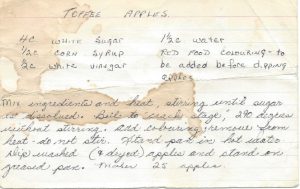 TOFFEE APPLES
4C WHITE SUGAR 1½C WATER
½C CORN SYRUP RED FOOD COLOURING - to
½C White Vinegar be added before dipping
apples
Mix ingredients and heat, stirring until sugar
is dissolved. Boil to "crack stage", 290 degrees
without stirring. Add colouring, remove from
heat - do not stir. Stand pan in hot water
Dip washed (& dryed) apples and stand on
greased pan. Makes 25 apples